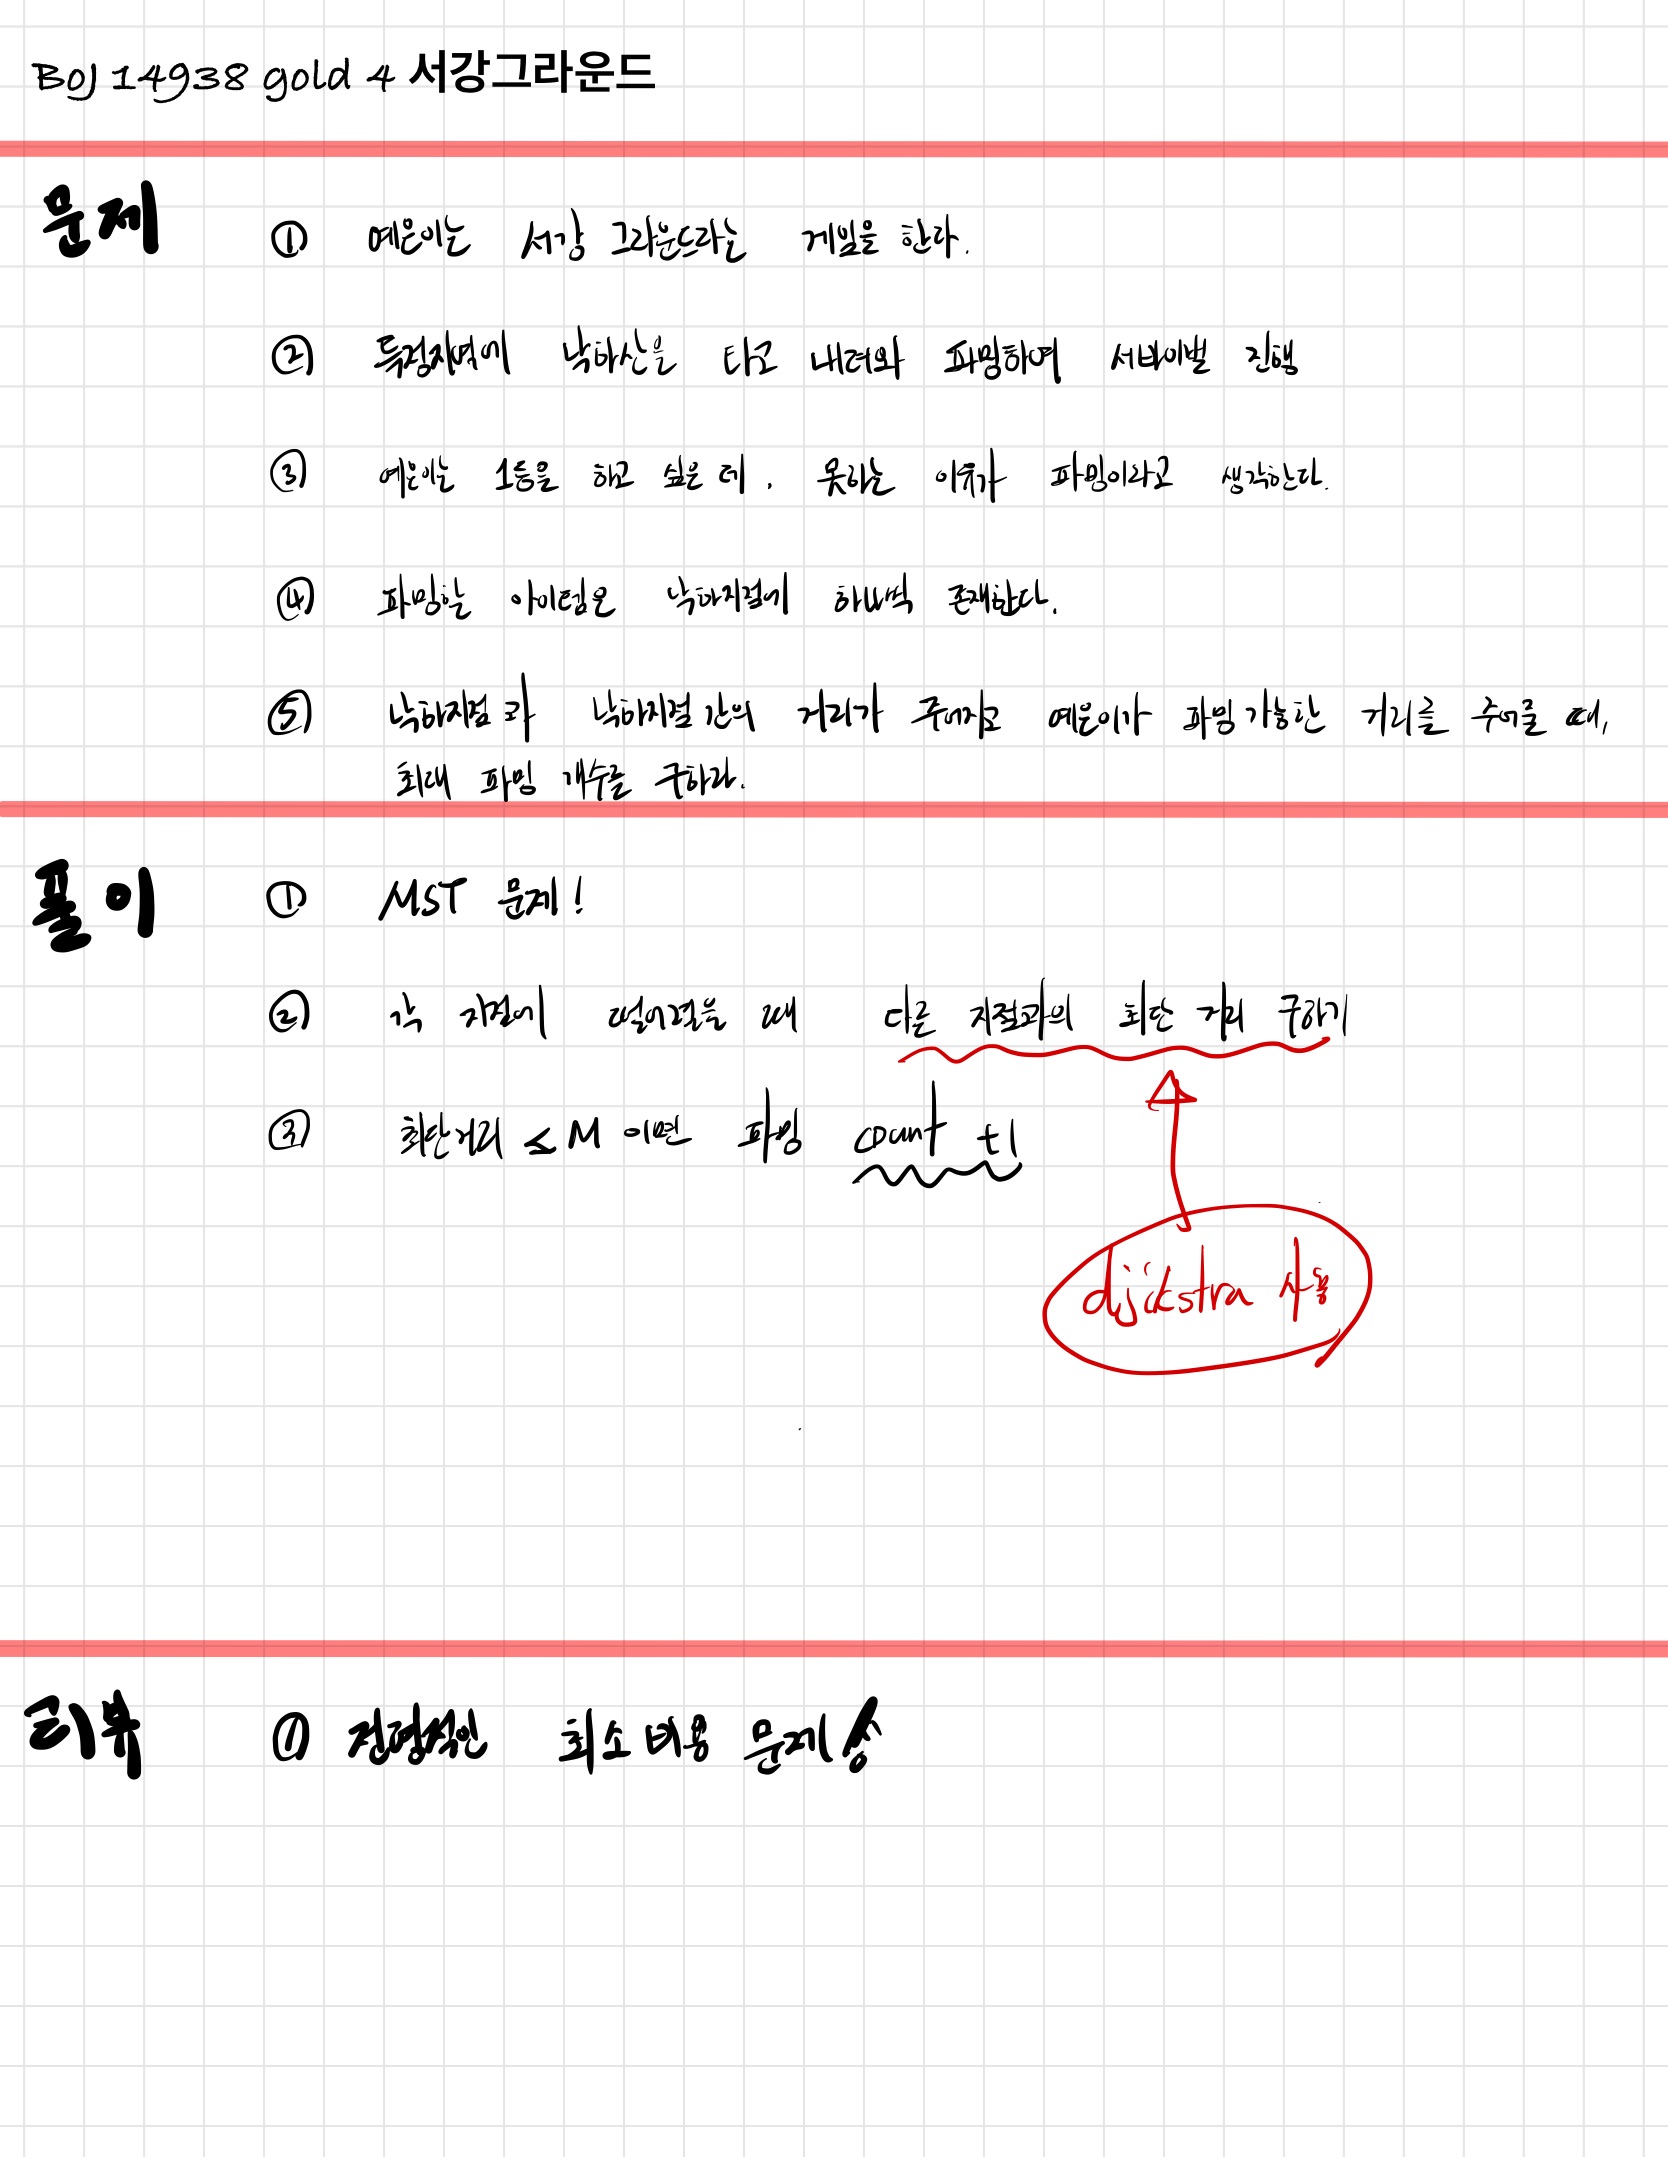 BOJ 14938 gold 4 서강그라운드
문제
① 예은이는 서강 그라운드라는 게임을 한다.
② 특정지역에 낙하산을 타고 내려와 파밍하여 서바이벌 진행
③ 예은이는 1등을 하고 싶은 데, 못하는 이유가 파밍이라고 생각한다.
④ 파밍할 아이템은 낙하지점에 하나씩 존재한다.
⑤ 낙하지점과 낙하지점 간의 거리가 주어지고 예은이가 파밍 가능한 거리를 주어줄 때,
최대 파밍 개수를 구하라.
풀이
① MST 문제!
② 각 지점에 떨어졌을 때 다른 지점과의 최단 거리 구하기
③ 최단거리 ≤ M 이면 파밍 count +1
dijkstra 사용
리뷰
① 전형적인 최소 비용 문제